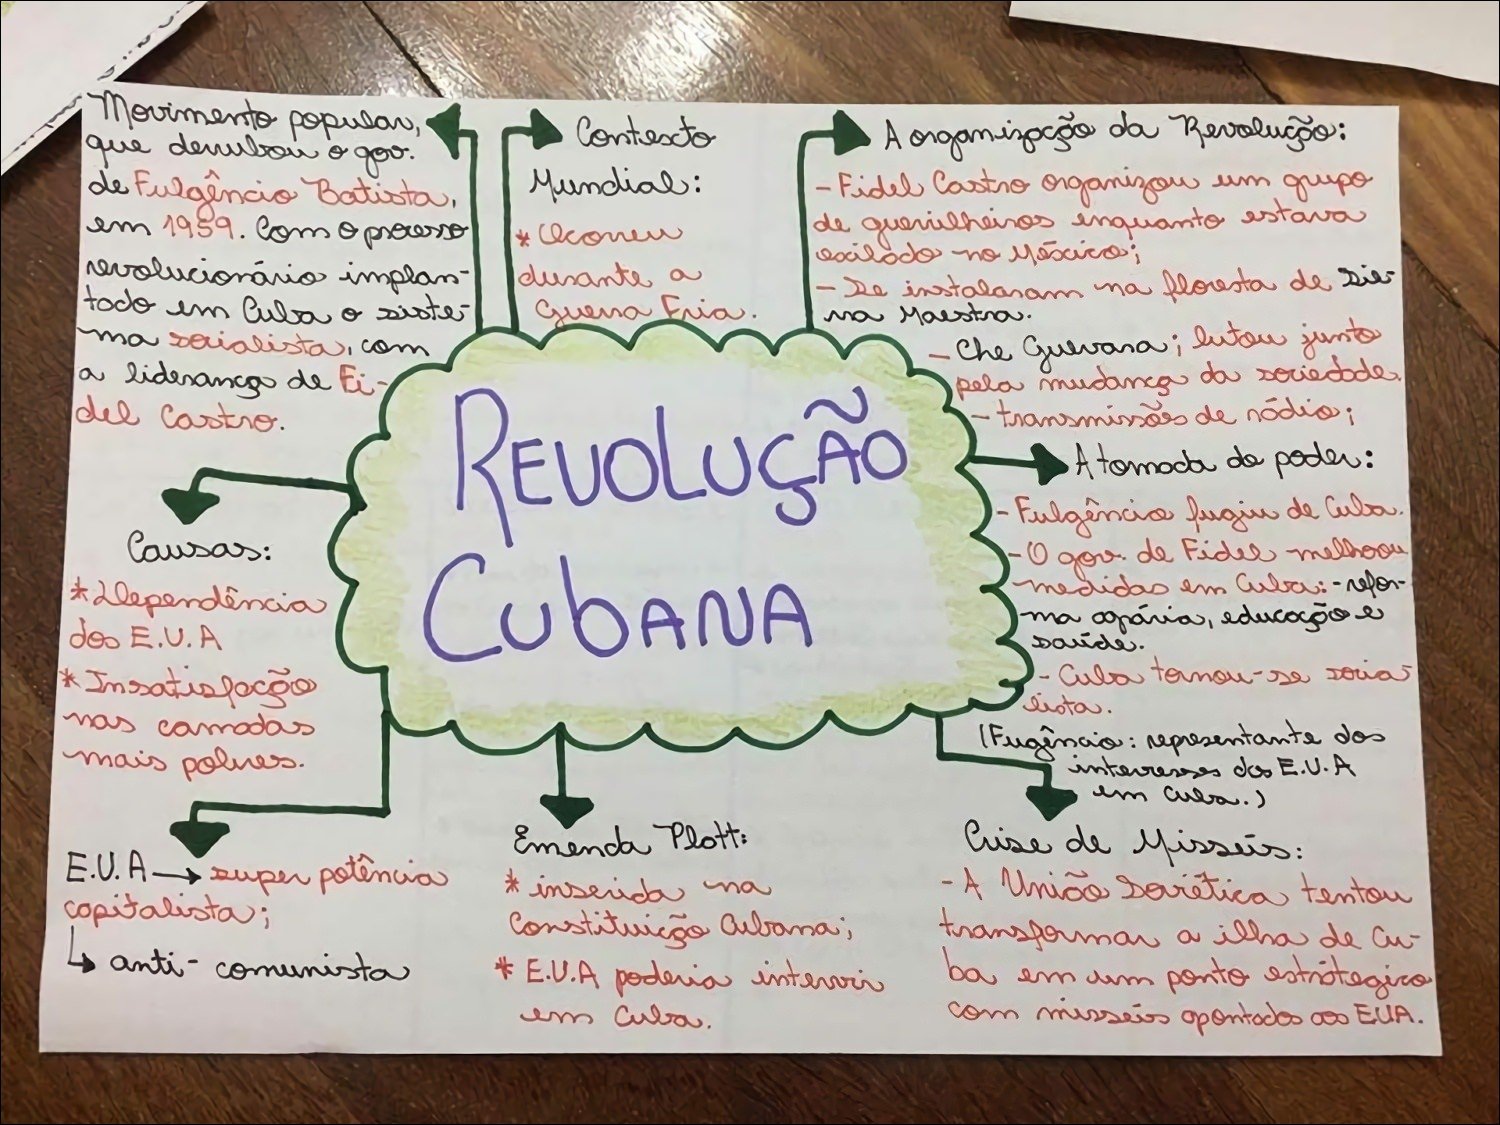 Movimento popular,
que derrubou o gov.
de Fulgêncio Batista,
em 1959. Com o processo
revolucionário implan-
tado em Cuba o siste-
ma socialista, com
a liderança de Fi-
del Castro.
Contexto
Mundial:
* Ocorreu
durante a
Guerra Fria.
A organização da Revolução:
- Fidel Castro organizou um grupo
de guerrilheiros enquanto estava
exilado no México;
- Se instalaram na floresta de Sie-
rra Maestra.
- Che Guevara; lutou junto
pela mudança da sociedade.
- transmissões de rádio;
REVOLUÇÃO
CUBANA
A tomada do poder:
- Fulgêncio fugiu de Cuba.
- O gov. de Fidel melhorou
medidas em Cuba: - refor-
ma agrária, educação e
saúde.
- Cuba tornou-se socia-
lista.
(Fugêncio: representante dos
interesses dos E.U.A
em Cuba.)
Causas:
* Dependência
dos E.U.A
* Insatisfação
nas camadas
mais pobres.
E.U.A → super potência
capitalista;
↳ anti-comunista
Emenda Platt:
* inserida na
Constituição Cubana;
* E.U.A poderia intervir
em Cuba.
Crise de Misseis:
- A União Soviética tentou
transformar a ilha de Cu-
ba em um ponto estrátegico
com misseis apontados aos EUA.